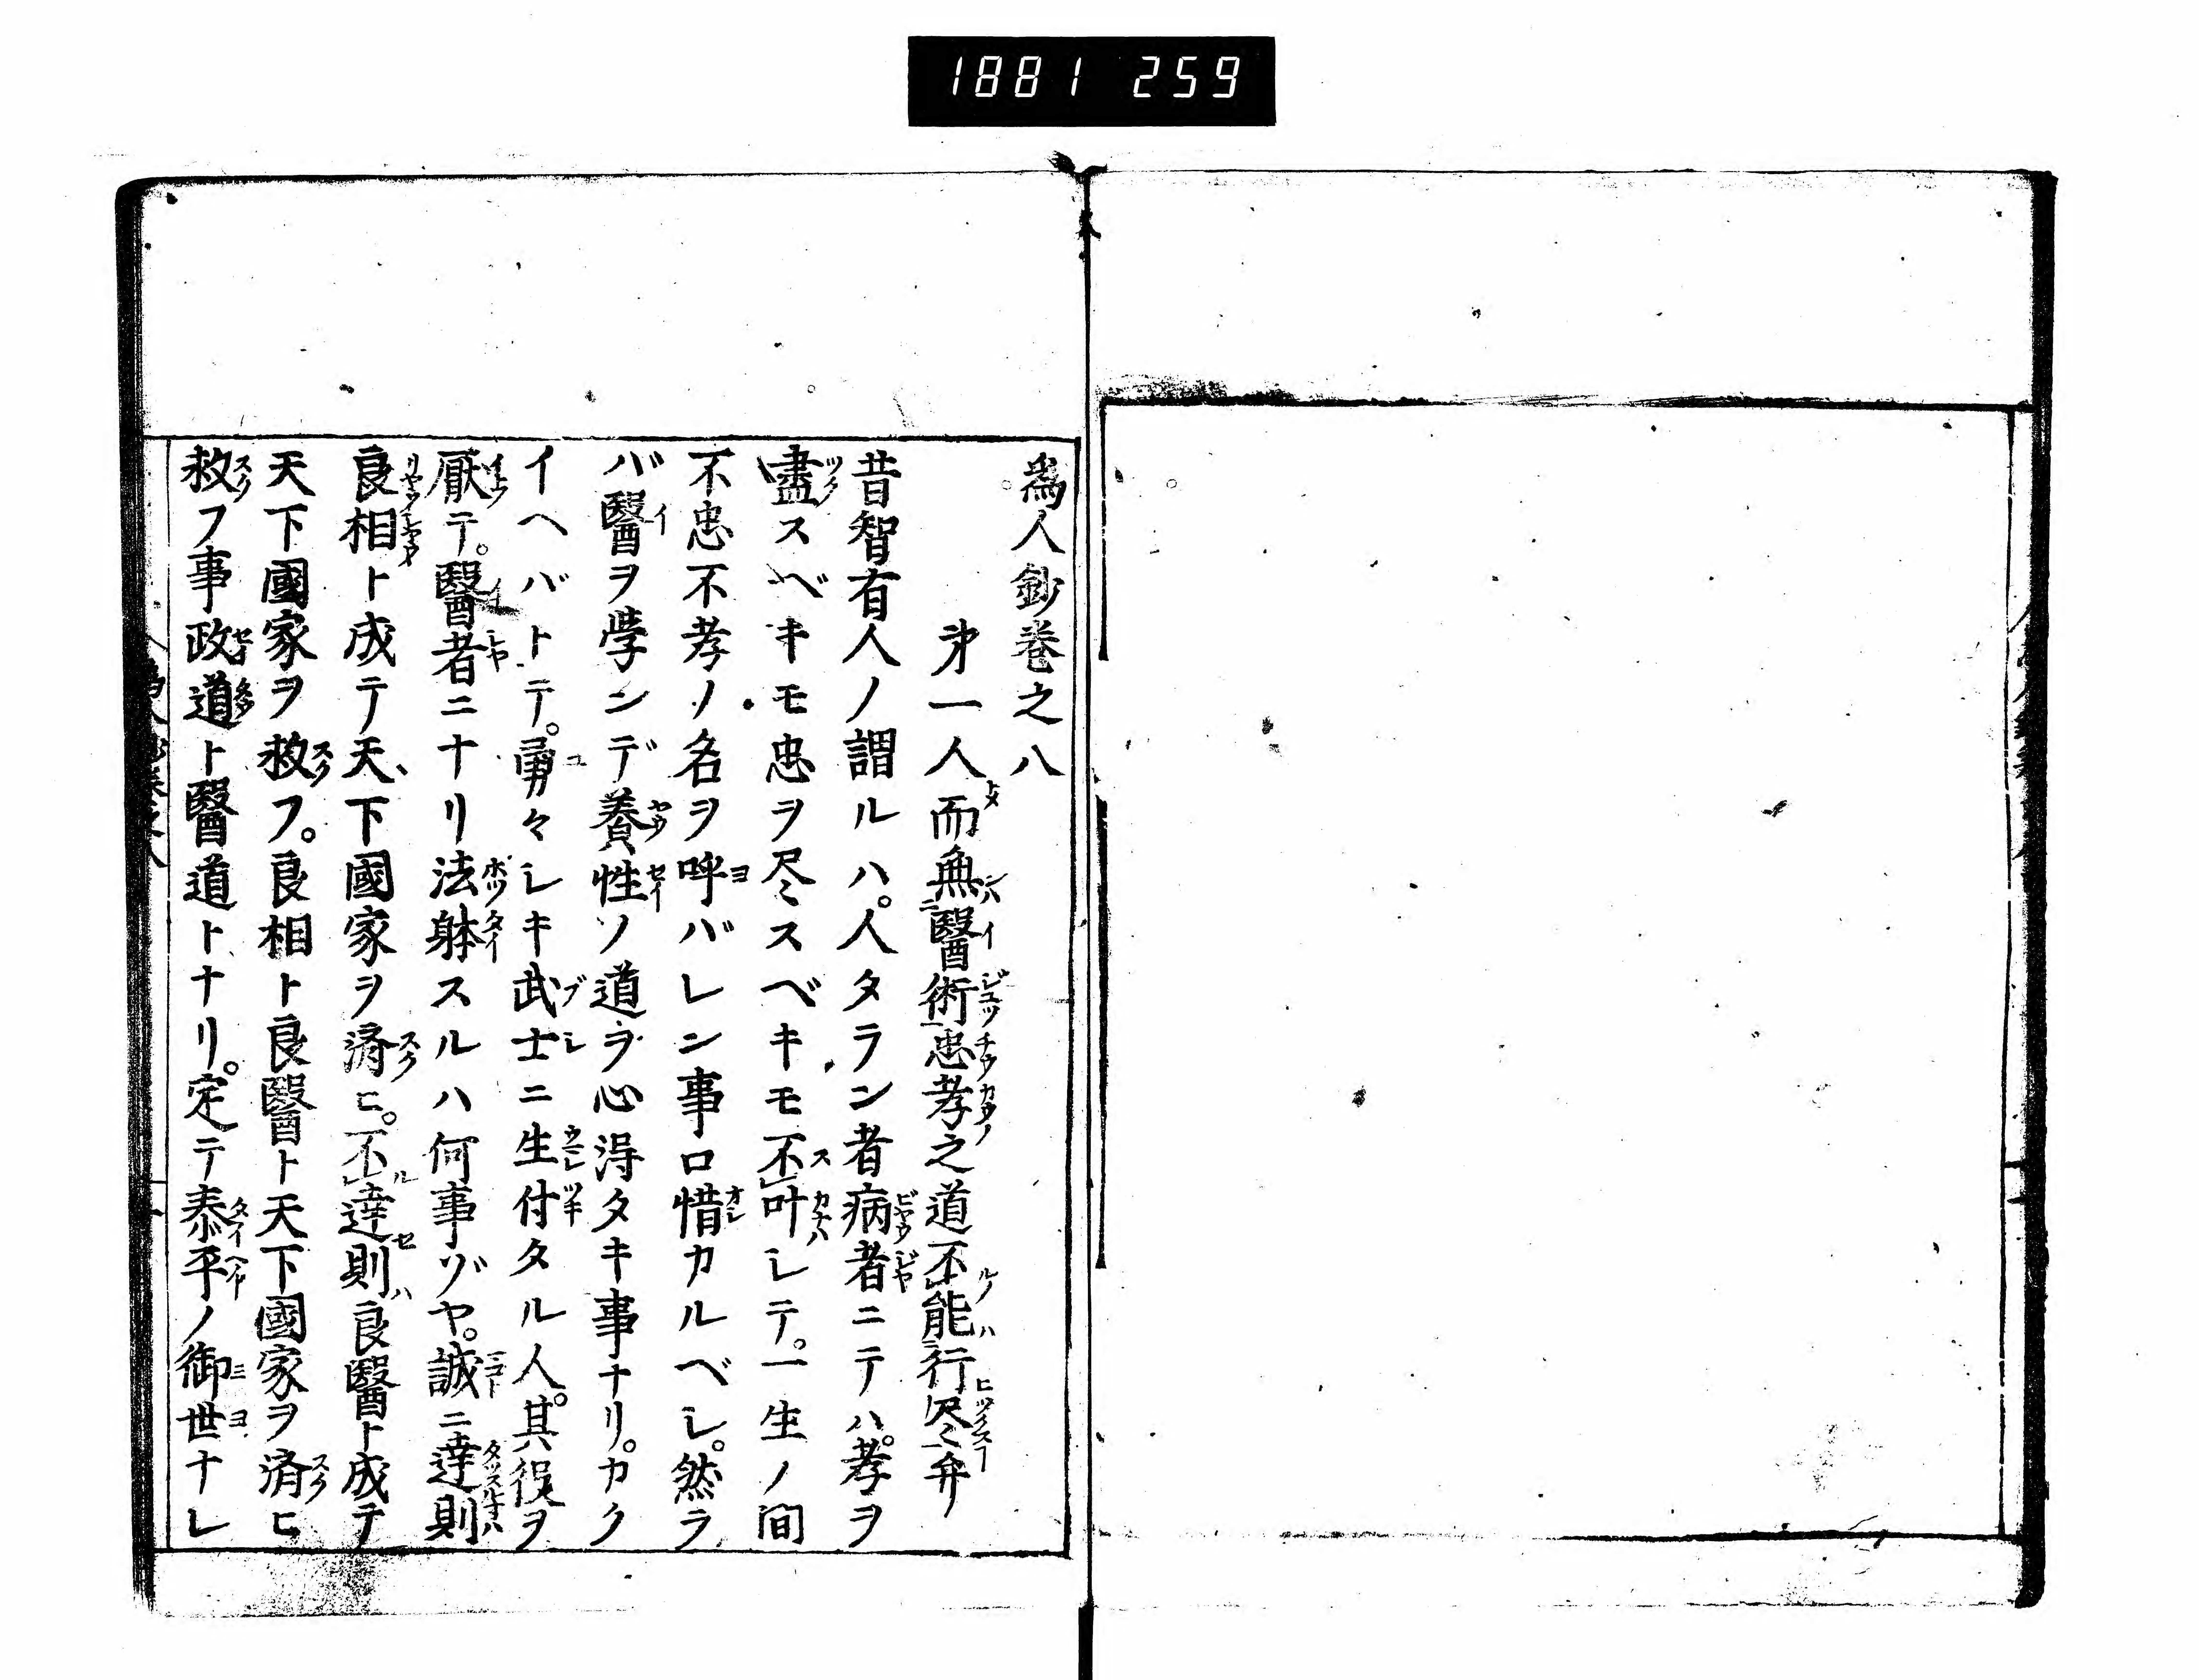 1881 259
為人鈔巻之八
㐧一人而無醫術忠孝之道不能行尽弁
昔智有人ノ謂ルハ。人タラン者病者ニテハ。孝ヲ
盡スベキモ忠ヲ尽スベキモ不叶シテ。一生ノ間
不忠不孝ノ名ヲ呼バレン事口惜カルベシ。然ラ
バ醫ヲ學ンデ養性ノ道ヲ心得タキ事ナリ。カク
イヘバトテ。勇々シキ武士ニ生付タル人。其役ヲ
厭テ。醫者ニナリ法躰スルハ何事ゾヤ。誠ニ達則
良相ト成テ天下國家ヲ済ヒ。不達則良醫ト成テ
天下國家ヲ救フ。良相ト良醫ト天下國家ヲ済ヒ
救フ事政道ト醫道トナリ。定テ泰平ノ御世ナレ